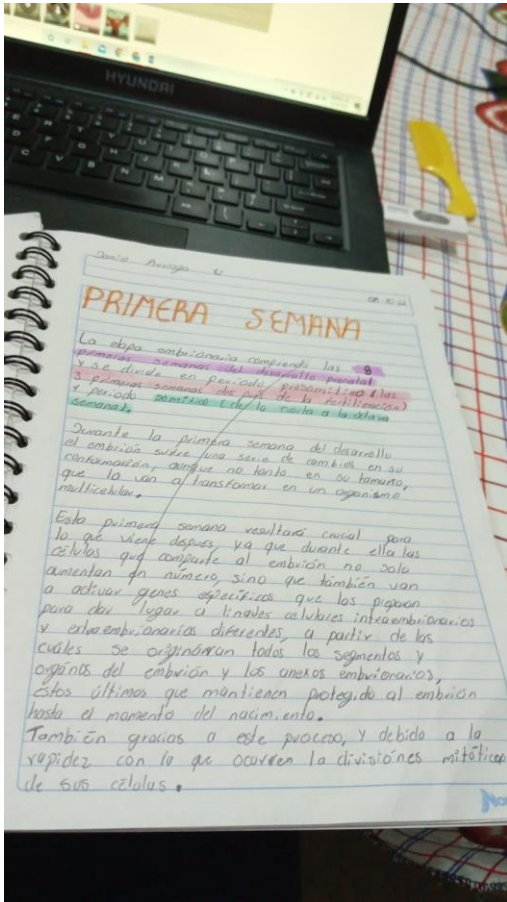 HYUNDAI
PRIMERA SEMANA
La etapa embrionaria comprende las 8
primeras semanas del desarrollo prenatal
y se divide en periodo presomitico (las
3 primeras semanas de la fertilización)
y periodo somitico (de la cuarta a la octava
semana).
Durante la primera semana del desarrollo
el embrión sufre una serie de cambios en su
conformación, aunque no tanto en su tamaño,
que lo van a transformar en un organismo
multicelular.
Esta primera semana resultara crucial para
lo que viene después, ya que durante ella las
células que comparte al embrión no solo
aumentan en número, sino que también van
a activar genes específicos que los preparan
para dar lugar a linajes celulares intraembrionarios
y extraembrionarios diferentes, a partir de los
cuáles se originaran todos los segmentos y
orgános del embrión y los anexos embrionarios,
estos últimos que mantienen protegido al embrión
hasta el momento del nacimiento.
También gracias a este proceso, y debido a la
rapidez con la que ocurren la divisiónes mitóticas
de sus células.